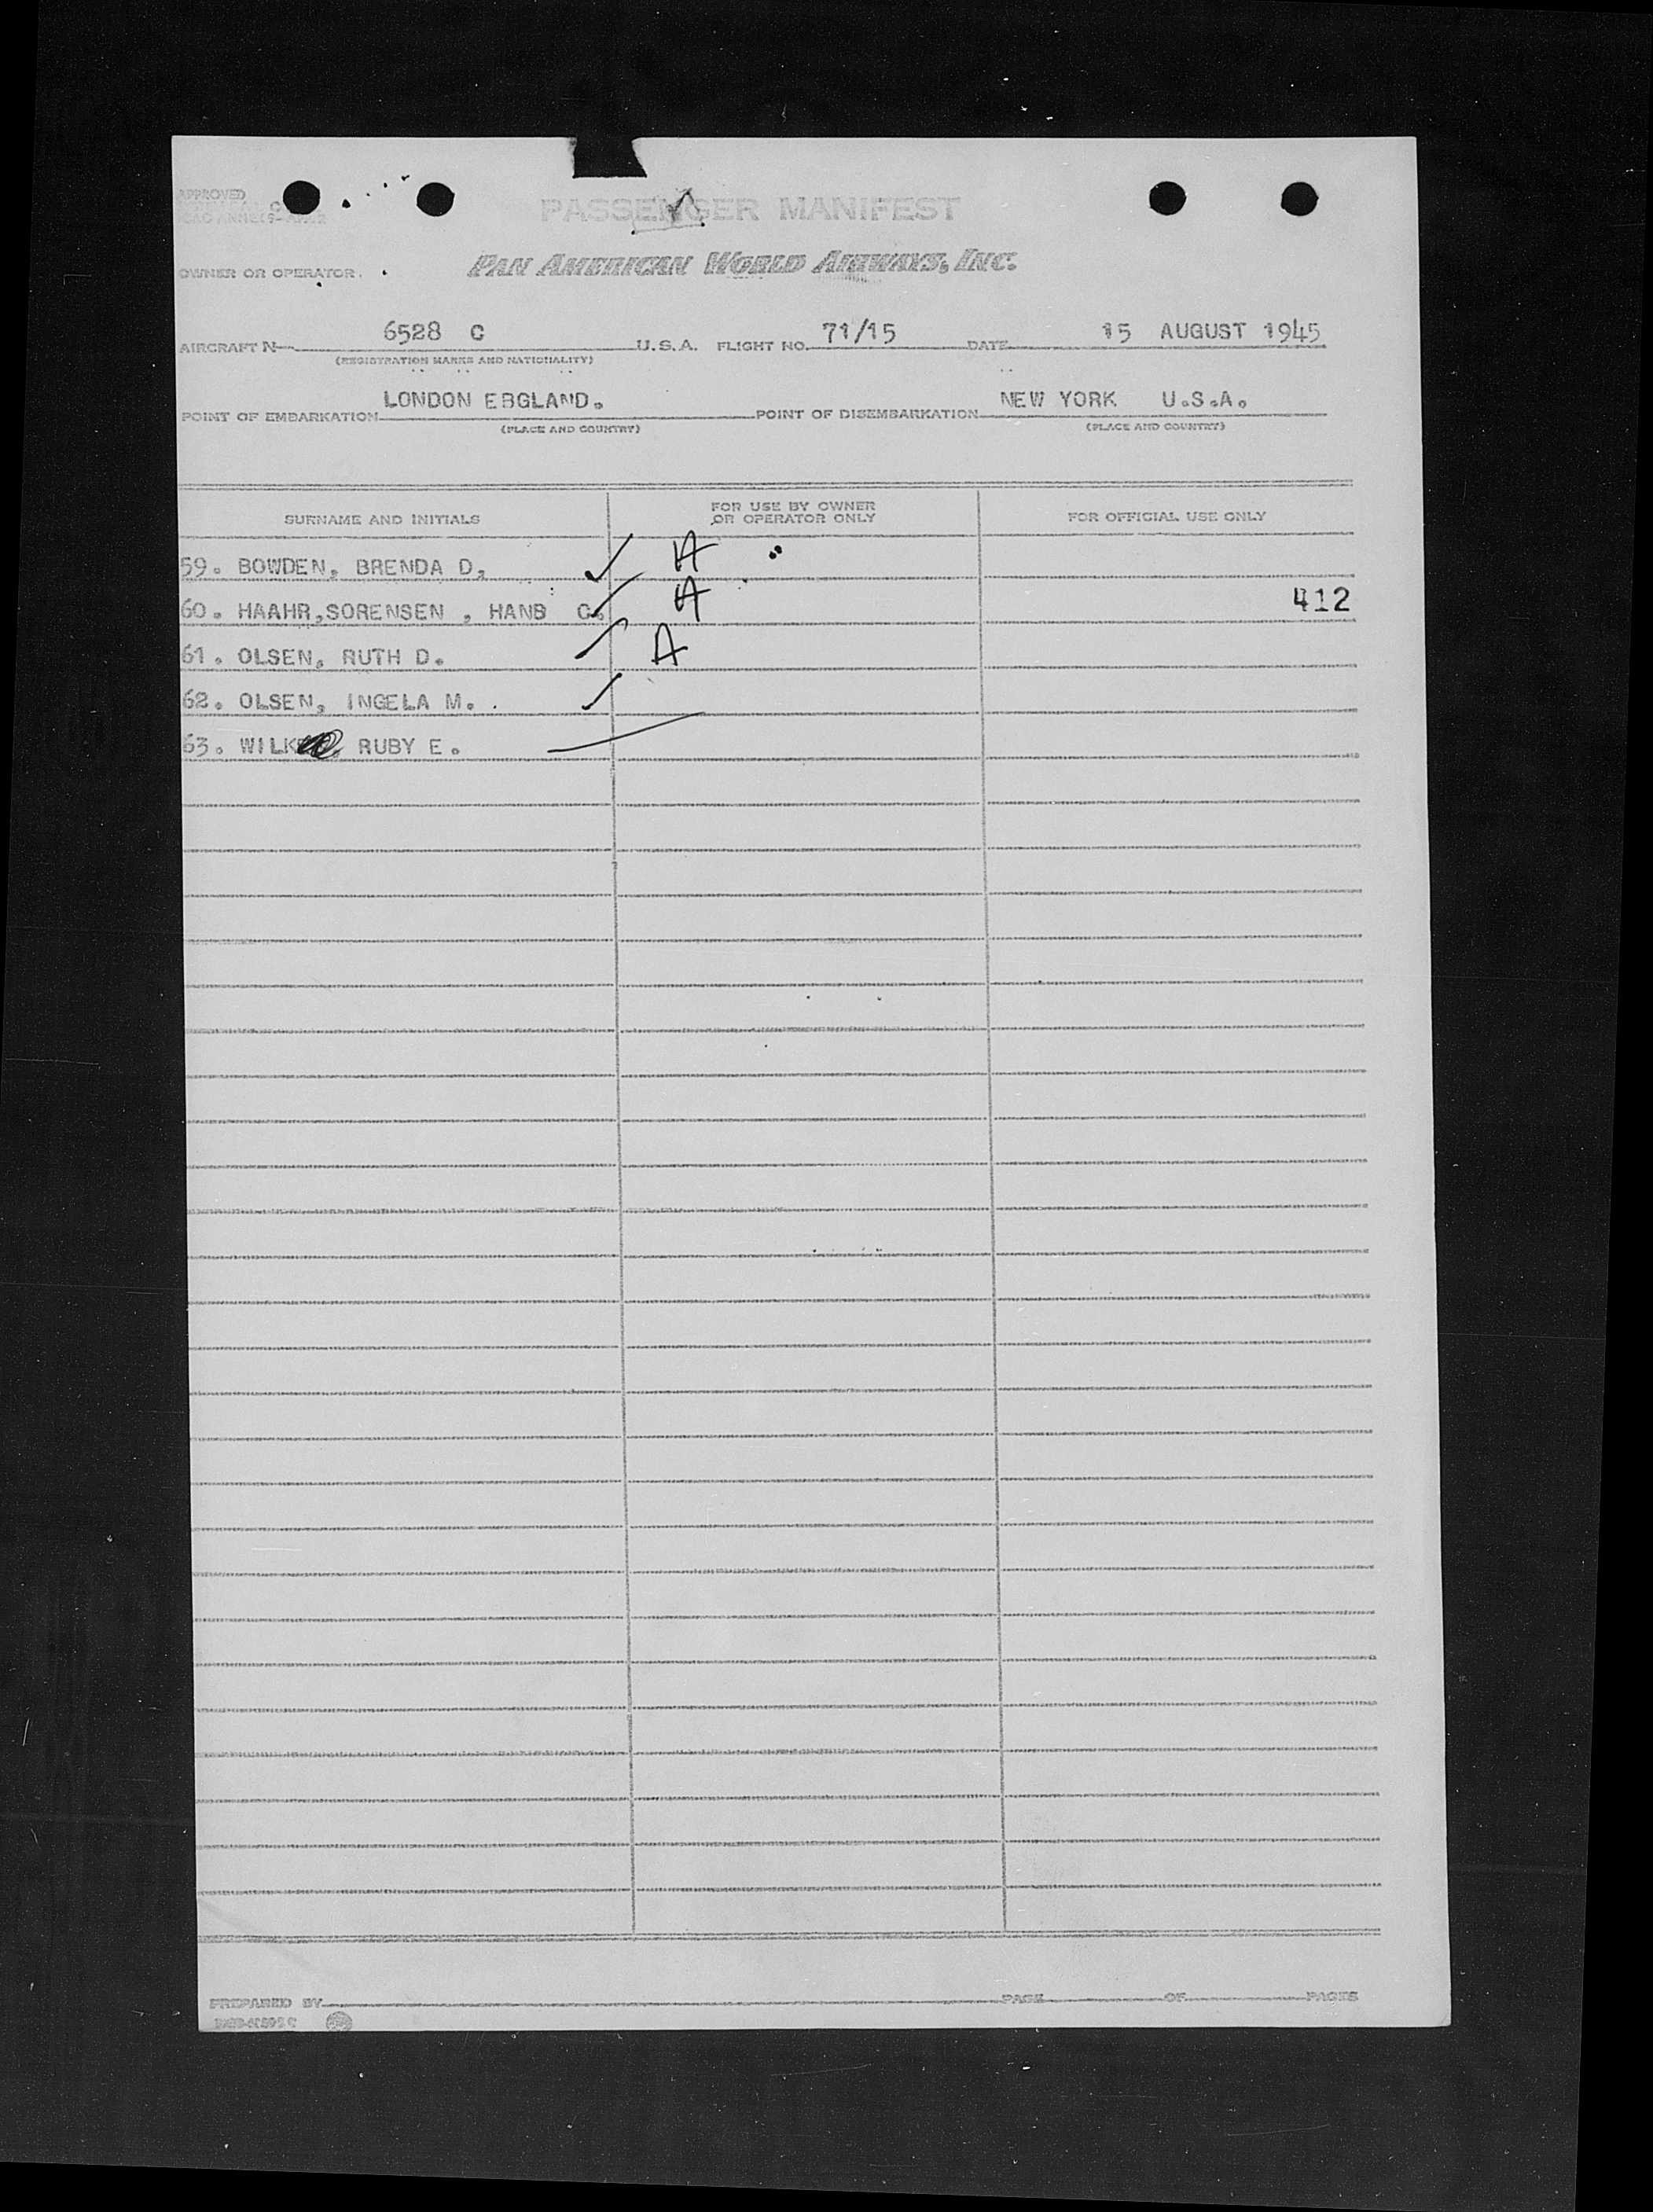 APPROVED
PASSENGER MANIFEST
OWNER OR OPERATOR. PAN AMERICAN WORLD AIRWAYS, INC.
AIRCRAFT N 6528 C U.S.A. FLIGHT NO. 71/15 DATE 15 AUGUST 1945
(REGISTRATION MARKS AND NATIONALITY)
POINT OF EMBARKATION LONDON EBGLAND. POINT OF DISEMBARKATION NEW YORK U.S.A.
(PLACE AND COUNTRY) (PLACE AND COUNTRY)
SURNAME AND INITIALS FOR USE BY OWNER OR OPERATOR ONLY FOR OFFICIAL USE ONLY
59. BOWDEN, BRENDA D,
60. HAAHR,SORENSEN , HANB C. 412
61. OLSEN, RUTH D. A
62. OLSEN, INGELA M.
63. RUBY E.
PREPARED BY PAGE OF PAGES